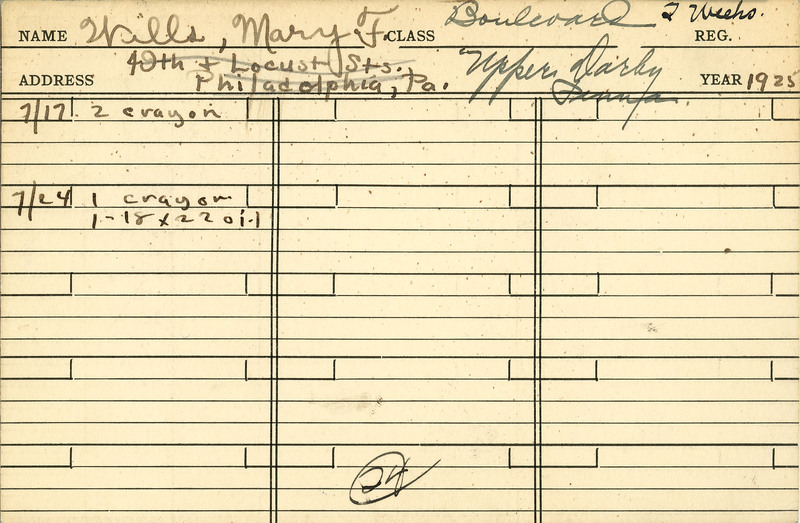 NAME Wills, Mary F. CLASS Boulevard 2 Weeks. REG.
ADDRESS 40th & Locust Sts. Upper Darby
Philadelphia, Pa. Penna. YEAR 1925
7/17 2 crayon
7/24 1 crayon
1-18 x 22 oil
24